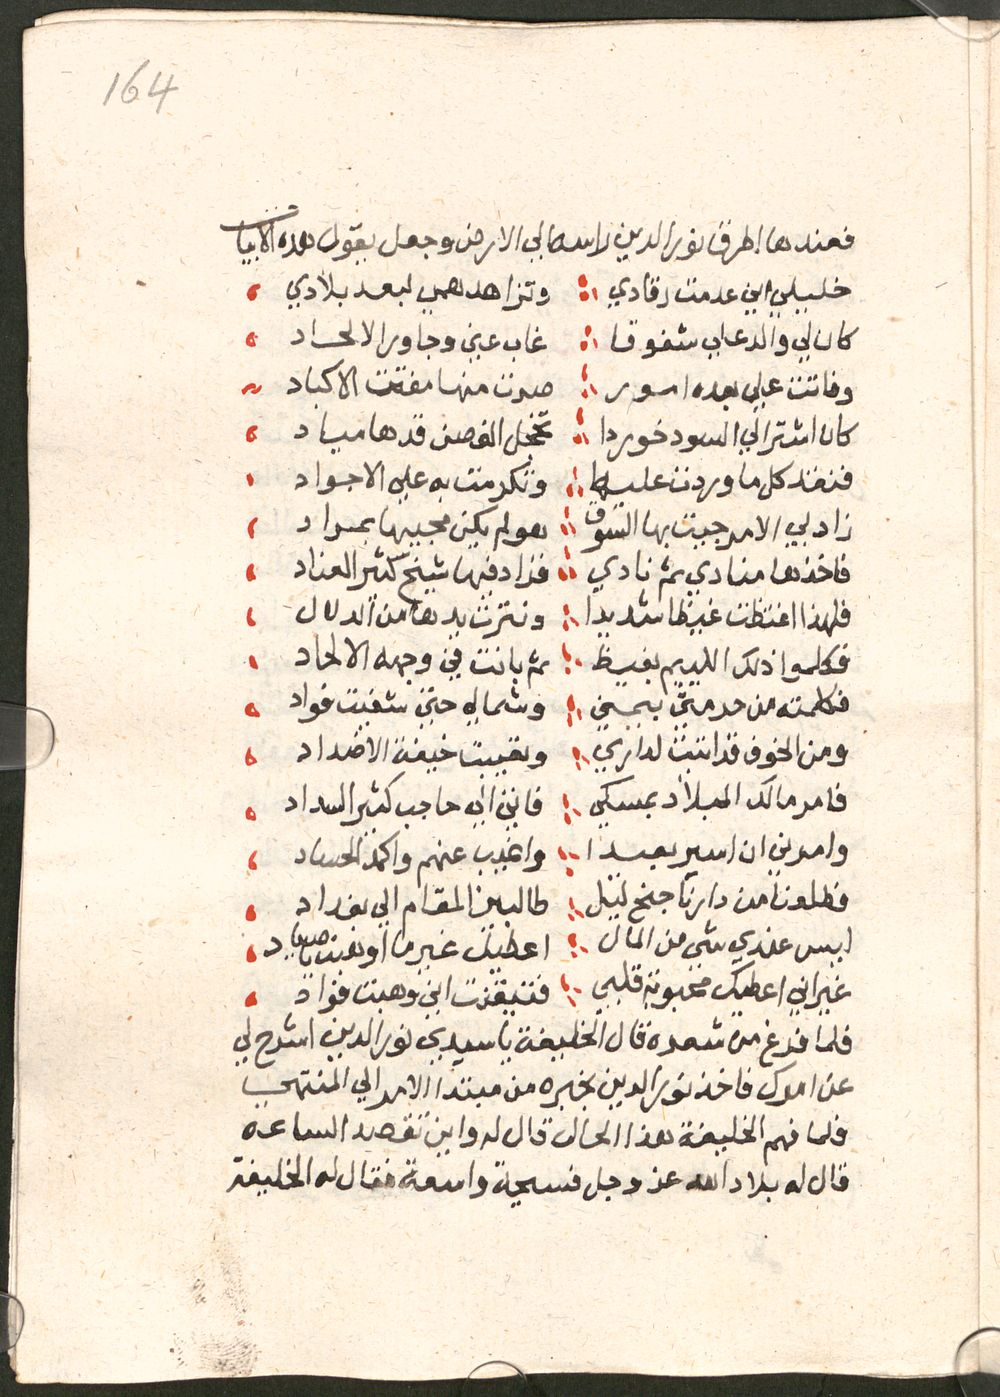 164
فعندها اطرق نور الدين راسه الي الارض وجعل يقول هذه الابيات
خليلي اني عدمت رقادي وتزاهد همي لبعد بلادي
كان لي والد علي شفوقا غاب عني وجاور الالحاد
وفاتت علي بعده امور صرت منها مفتت الاكباد
كان اشترا لي السود خوردا تخجل الغصن قدها مياد
فنفذ كل ما وردت عليها وتكرمت به علي الاجواد
زاد بي الامر جيت بها السوق هو لم يكن مجيبها بمراد
فاخذها منادي ثم نادي فزاد فيها شيخ كثير العناد
فلهذا اغتظت غيظا شديدا ونترت يدها من الدلال
فكلموا ذلك الليم بغيظ ثم بانت في وجهه الالحاد
فكلمته من حرمتي بيميني وشمالي حتي شفيت فواد
ومن الخوف قد اتيت لداري وبقيت خيفة الاضداد
فامر مالك البلاد بمسكي فاتني الي حاجب كثير السداد
وامرني ان اسير بعيدا واغيب عنهم واكمد الحساد
فطلعونا من دارنا جنح ليل طالبين المقام الي بغداد
ليس عندي شي من المال اعطيك غير ما اوهبت صياد
غير اني اعطيك محبوبة قلبي فتيقنت اني وهبت فواد
فلما فرغ من شعره قال الخليفة يا سيدي نور الدين اشرح لي
عن امرك فاخذ نور الدين يخبره من مبتدا الامر الي المنتهي
فلما فهم الخليفة هذا الحال قال له واين تقصد الساعه
قال له بلاد الله عز وجل فسيحة واسعة فقال له الخليفة